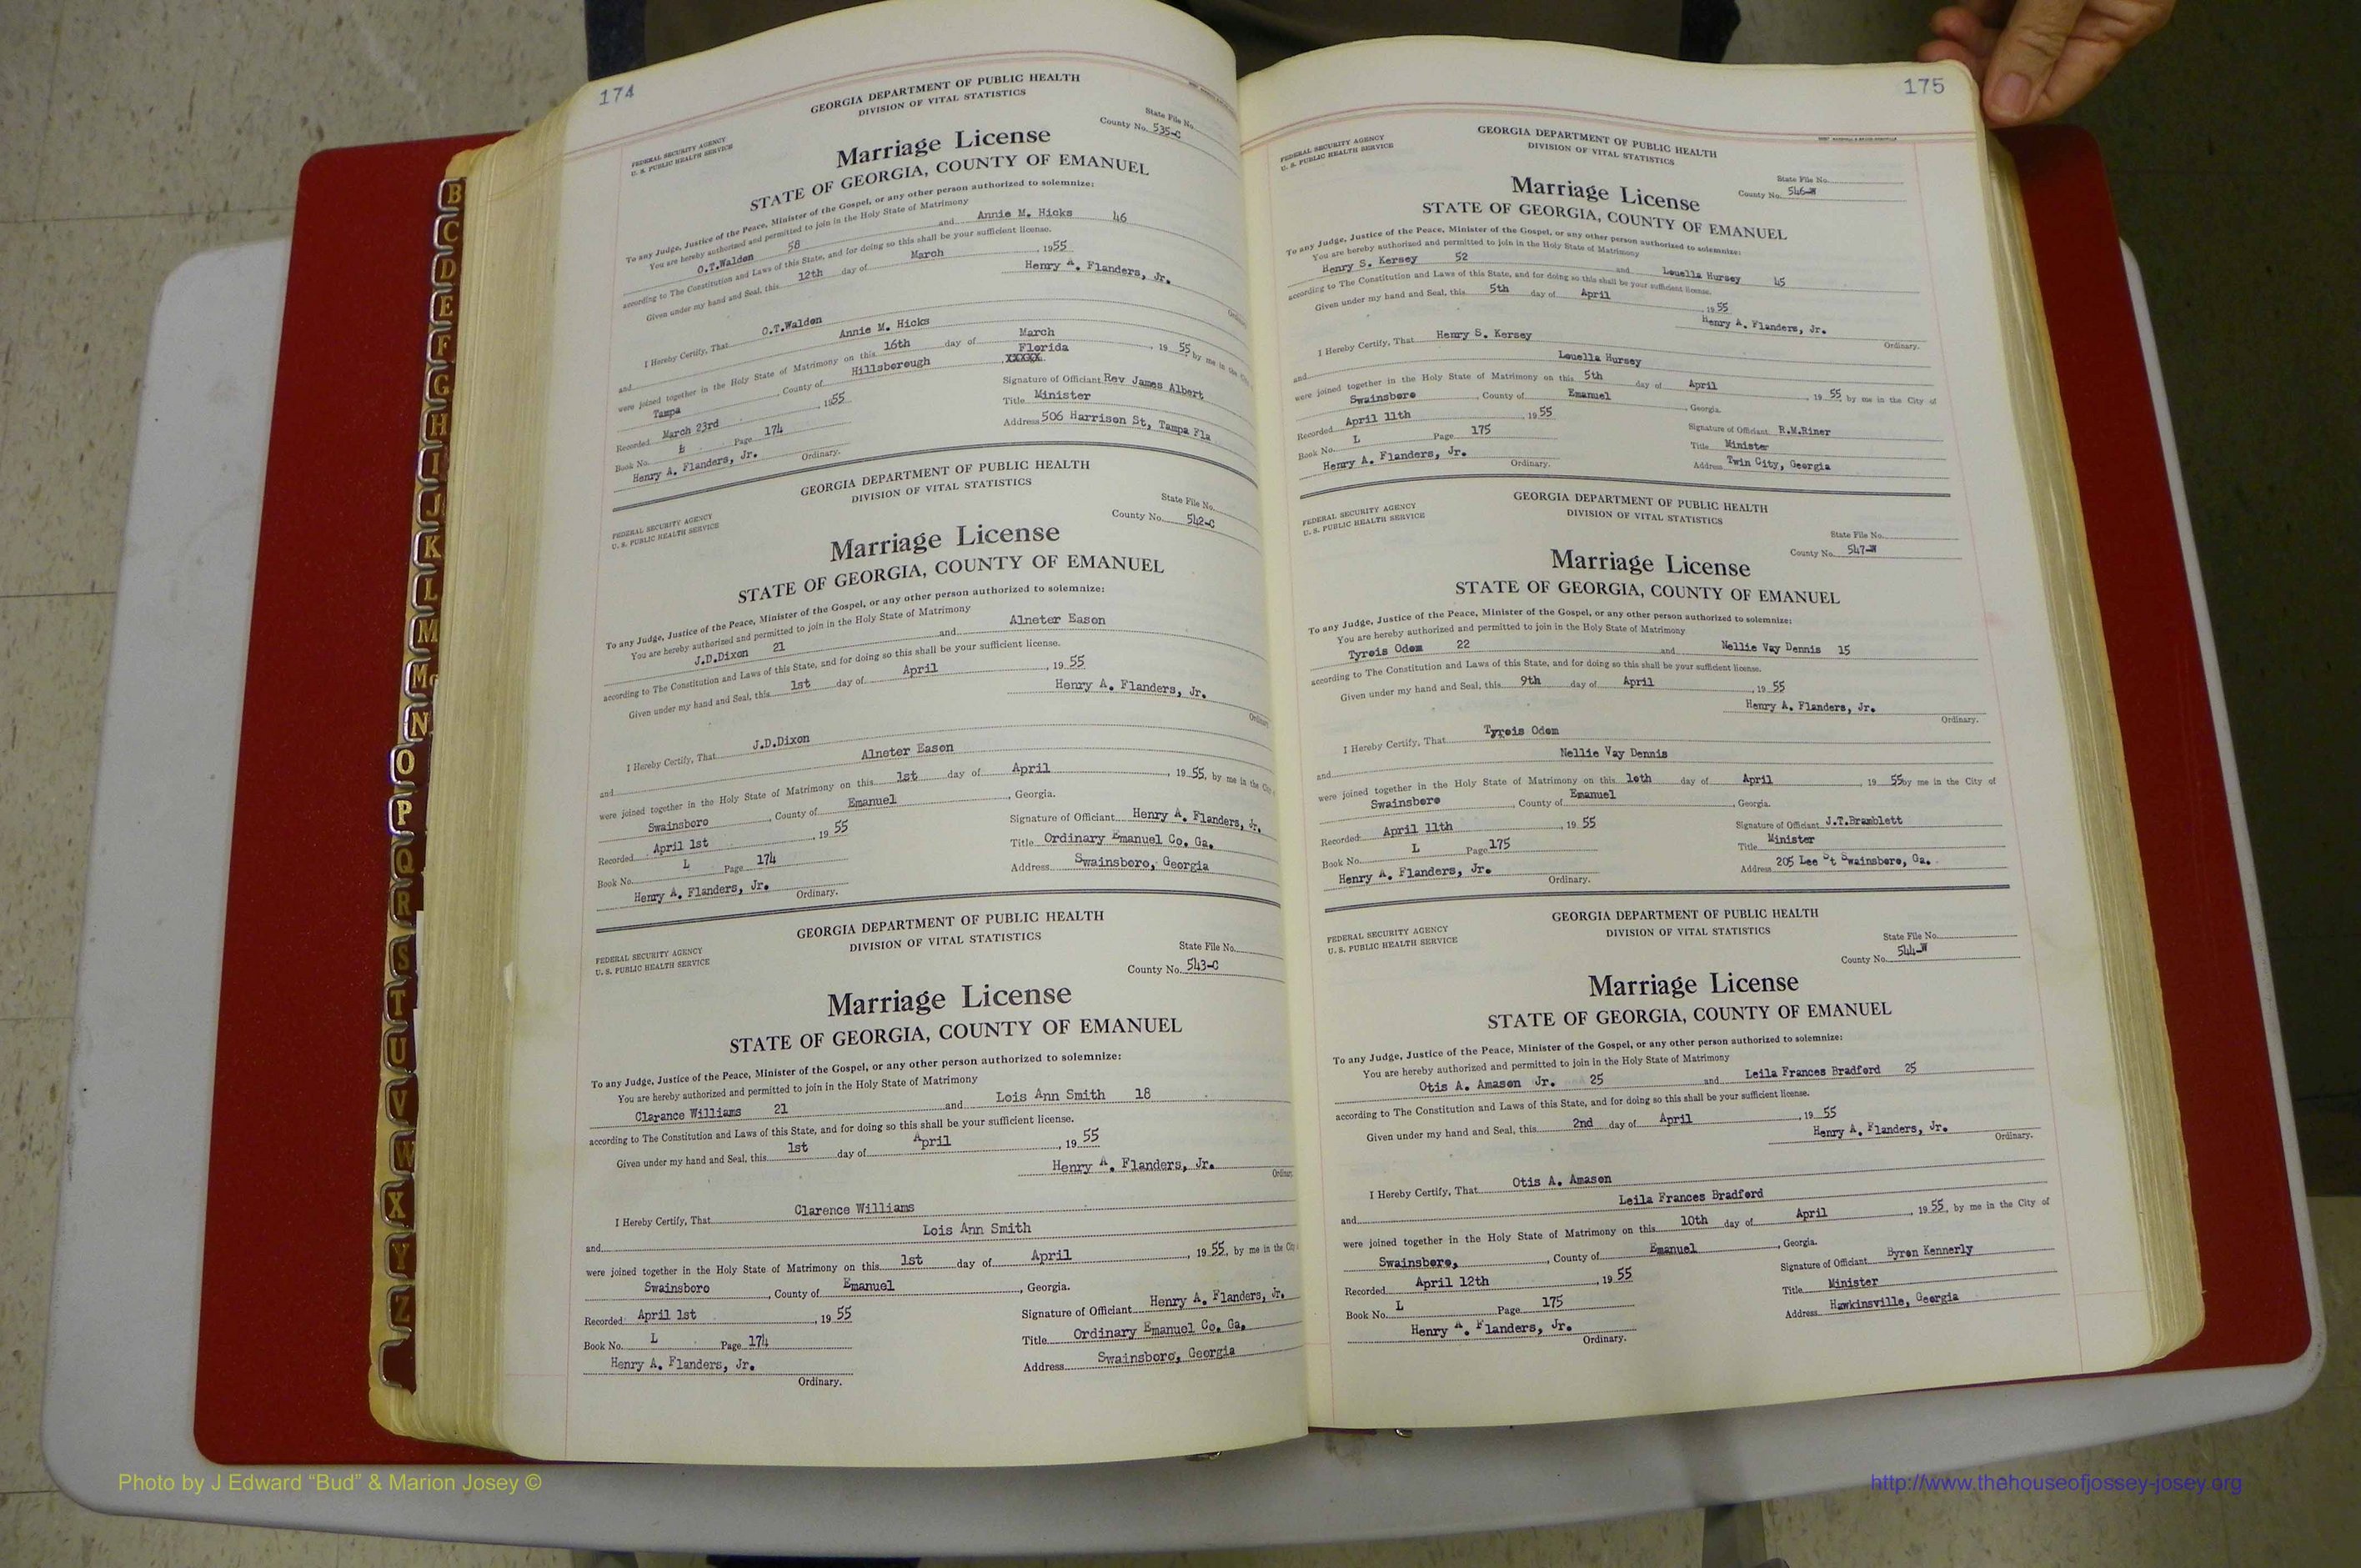 174
GEORGIA DEPARTMENT OF PUBLIC HEALTH
DIVISION OF VITAL STATISTICS
FEDERAL SECURITY AGENCY
U. S. PUBLIC HEALTH SERVICE
State File No.
County No. 535-C
Marriage License
STATE OF GEORGIA, COUNTY OF EMANUEL
To any Judge, Justice of the Peace, Minister of the Gospel, or any other person authorized to solemnize:
You are hereby authorized and permitted to join in the Holy State of Matrimony
O.T.Walden 58 and Annie M. Hicks 46
according to The Constitution and Laws of this State, and for doing so this shall be your sufficient license.
Given under my hand and Seal, this 12th day of March, 1955
Henry A. Flanders, Jr.
Ordinary
I Hereby Certify, That O.T.Walden
and Annie M. Hicks
were joined together in the Holy State of Matrimony on this 16th day of March, 19 55 by me in the City
Tampa, County of Hillsborough, Florida XXXXX
Recorded March 23rd, 1955
Signature of Officiant Rev James Albert
Book No. L Page 174
Title Minister
Henry A. Flanders, Jr.
Address 506 Harrison St, Tampa Fla
Ordinary.
GEORGIA DEPARTMENT OF PUBLIC HEALTH
DIVISION OF VITAL STATISTICS
FEDERAL SECURITY AGENCY
U. S. PUBLIC HEALTH SERVICE
State File No.
County No. 542-C
Marriage License
STATE OF GEORGIA, COUNTY OF EMANUEL
To any Judge, Justice of the Peace, Minister of the Gospel, or any other person authorized to solemnize:
You are hereby authorized and permitted to join in the Holy State of Matrimony
J.D.Dixon 21 and Alneter Eason
according to The Constitution and Laws of this State, and for doing so this shall be your sufficient license.
Given under my hand and Seal, this 1st day of April, 19 55
Henry A. Flanders, Jr.
Ordinary
I Hereby Certify, That J.D.Dixon
and Alneter Eason
were joined together in the Holy State of Matrimony on this 1st day of April, 19 55, by me in the City
Swainsboro, County of Emanuel, Georgia.
Recorded April 1st, 19 55
Signature of Officiant Henry A. Flanders, Jr.
Book No. L Page 174
Title Ordinary Emanuel Co. Ga.
Henry A. Flanders, Jr.
Address Swainsboro, Georgia
Ordinary.
GEORGIA DEPARTMENT OF PUBLIC HEALTH
DIVISION OF VITAL STATISTICS
FEDERAL SECURITY AGENCY
U. S. PUBLIC HEALTH SERVICE
State File No.
County No. 543-C
Marriage License
STATE OF GEORGIA, COUNTY OF EMANUEL
To any Judge, Justice of the Peace, Minister of the Gospel, or any other person authorized to solemnize:
You are hereby authorized and permitted to join in the Holy State of Matrimony
Clarance Williams 21 and Lois Ann Smith 18
according to The Constitution and Laws of this State, and for doing so this shall be your sufficient license.
Given under my hand and Seal, this 1st day of April, 19 55
Henry A. Flanders, Jr.
Ordinary
I Hereby Certify, That Clarence Williams
and Lois Ann Smith
were joined together in the Holy State of Matrimony on this 1st day of April, 19 55, by me in the City
Swainsboro, County of Emanuel, Georgia.
Recorded April 1st, 19 55
Signature of Officiant Henry A. Flanders, Jr.
Book No. L Page 174
Title Ordinary Emanuel Co. Ga.
Henry A. Flanders, Jr.
Address Swainsboro, Georgia
Ordinary.
175
GEORGIA DEPARTMENT OF PUBLIC HEALTH
DIVISION OF VITAL STATISTICS
FEDERAL SECURITY AGENCY
U. S. PUBLIC HEALTH SERVICE
State File No.
County No. 546-W
Marriage License
STATE OF GEORGIA, COUNTY OF EMANUEL
To any Judge, Justice of the Peace, Minister of the Gospel, or any other person authorized to solemnize:
You are hereby authorized and permitted to join in the Holy State of Matrimony
Henry S. Kersey 52 and Louella Hursey 45
according to The Constitution and Laws of this State, and for doing so this shall be your sufficient license.
Given under my hand and Seal, this 5th day of April, 19 55
Henry A. Flanders, Jr.
Ordinary.
I Hereby Certify, That Henry S. Kersey
and Louella Hursey
were joined together in the Holy State of Matrimony on this 5th day of April, 19 55 by me in the City of
Swainsboro, County of Emanuel, Georgia.
Recorded April 11th, 19 55
Signature of Officiant R.M.Riner
Book No. L Page 175
Title Minister
Henry A. Flanders, Jr.
Address Twin City, Georgia
Ordinary.
GEORGIA DEPARTMENT OF PUBLIC HEALTH
DIVISION OF VITAL STATISTICS
FEDERAL SECURITY AGENCY
U. S. PUBLIC HEALTH SERVICE
State File No.
County No. 547-W
Marriage License
STATE OF GEORGIA, COUNTY OF EMANUEL
To any Judge, Justice of the Peace, Minister of the Gospel, or any other person authorized to solemnize:
You are hereby authorized and permitted to join in the Holy State of Matrimony
Tyrois Odom 22 and Nellie Vay Dennis 15
according to The Constitution and Laws of this State, and for doing so this shall be your sufficient license.
Given under my hand and Seal, this 9th day of April, 19 55
Henry A. Flanders, Jr.
Ordinary.
I Hereby Certify, That Tyrois Odom
and Nellie Vay Dennis
were joined together in the Holy State of Matrimony on this 10th day of April, 19 55 by me in the City of
Swainsboro, County of Emanuel, Georgia.
Recorded April 11th, 19 55
Signature of Officiant J.T.Bramblett
Book No. L Page 175
Title Minister
Henry A. Flanders, Jr.
Address 205 Lee St Swainsboro, Ga.
Ordinary.
GEORGIA DEPARTMENT OF PUBLIC HEALTH
DIVISION OF VITAL STATISTICS
FEDERAL SECURITY AGENCY
U. S. PUBLIC HEALTH SERVICE
State File No.
County No. 544-W
Marriage License
STATE OF GEORGIA, COUNTY OF EMANUEL
To any Judge, Justice of the Peace, Minister of the Gospel, or any other person authorized to solemnize:
You are hereby authorized and permitted to join in the Holy State of Matrimony
Otis A. Amason Jr. 25 and Leila Frances Bradford 25
according to The Constitution and Laws of this State, and for doing so this shall be your sufficient license.
Given under my hand and Seal, this 2nd day of April, 19 55
Henry A. Flanders, Jr.
Ordinary.
I Hereby Certify, That Otis A. Amason
and Leila Frances Bradford
were joined together in the Holy State of Matrimony on this 10th day of April, 19 55, by me in the City of
Swainsboro, County of Emanuel, Georgia.
Recorded April 12th, 19 55
Signature of Officiant Byron Kennerly
Book No. L Page 175
Title Minister
Henry A. Flanders, Jr.
Address Hawkinsville, Georgia
Ordinary.
B
C
D
E
F
G
H
I
J
K
L
M
Mc
N
O
P
Q
R
S
T
U
V
W
X
Y
Z
Photo by J Edward “Bud” & Marion Josey ©
http://www.thehouseofjossey-josey.org